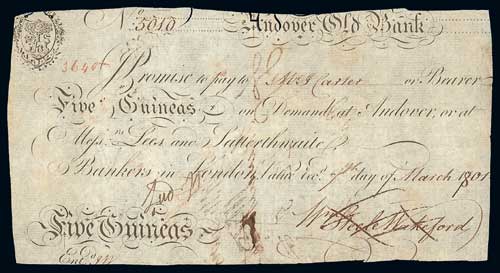 No. 5010 Andover Old Bank
I Promise to pay to Mr Carter or Bearer
Five Guineas on Demand, at Andover, or at
Messrs. Lees and Satterthwaite
Bankers in London, Value recd. 7th day of March 1801
Wm Steele Wakeford
Five Guineas
Entd.